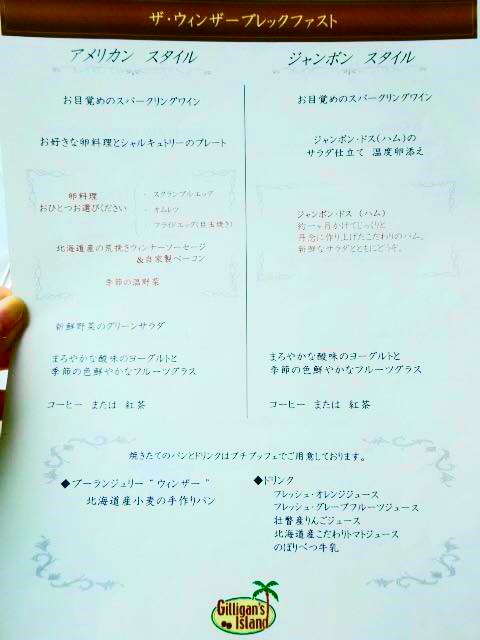 ザ・ウィンザーブレックファスト
アメリカン スタイル
お目覚めのスパークリングワイン
お好きな卵料理とシャルキュトリーのプレート
卵料理
おひとつお選びください
・ スクランブルエッグ
・ オムレツ
・ フライドエッグ(目玉焼き)
北海道産の荒挽きウィンナーソーセージ
&自家製ベーコン
季節の温野菜
新鮮野菜のグリーンサラダ
まろやかな酸味のヨーグルトと
季節の色鮮やかなフルーツグラス
コーヒー または 紅茶
ジャンボン スタイル
お目覚めのスパークリングワイン
ジャンボン・ドス(ハム)の
サラダ仕立て 温度卵添え
ジャンボン・ドス (ハム)
約一ヶ月かけてじっくりと
丹念に作り上げたこだわりのハム。
新鮮なサラダとともにどうぞ。
まろやかな酸味のヨーグルトと
季節の色鮮やかなフルーツグラス
コーヒー または 紅茶
焼きたてのパンとドリンクはプチブッフェでご用意しております。
◆ブーランジュリー “ ウィンザー ”
北海道産小麦の手作りパン
◆ドリンク
フレッシュ・オレンジジュース
フレッシュ・グレープフルーツジュース
壮瞥産りんごジュース
北海道産こだわりトマトジュース
のぼりべつ牛乳
Gilligan's
Island